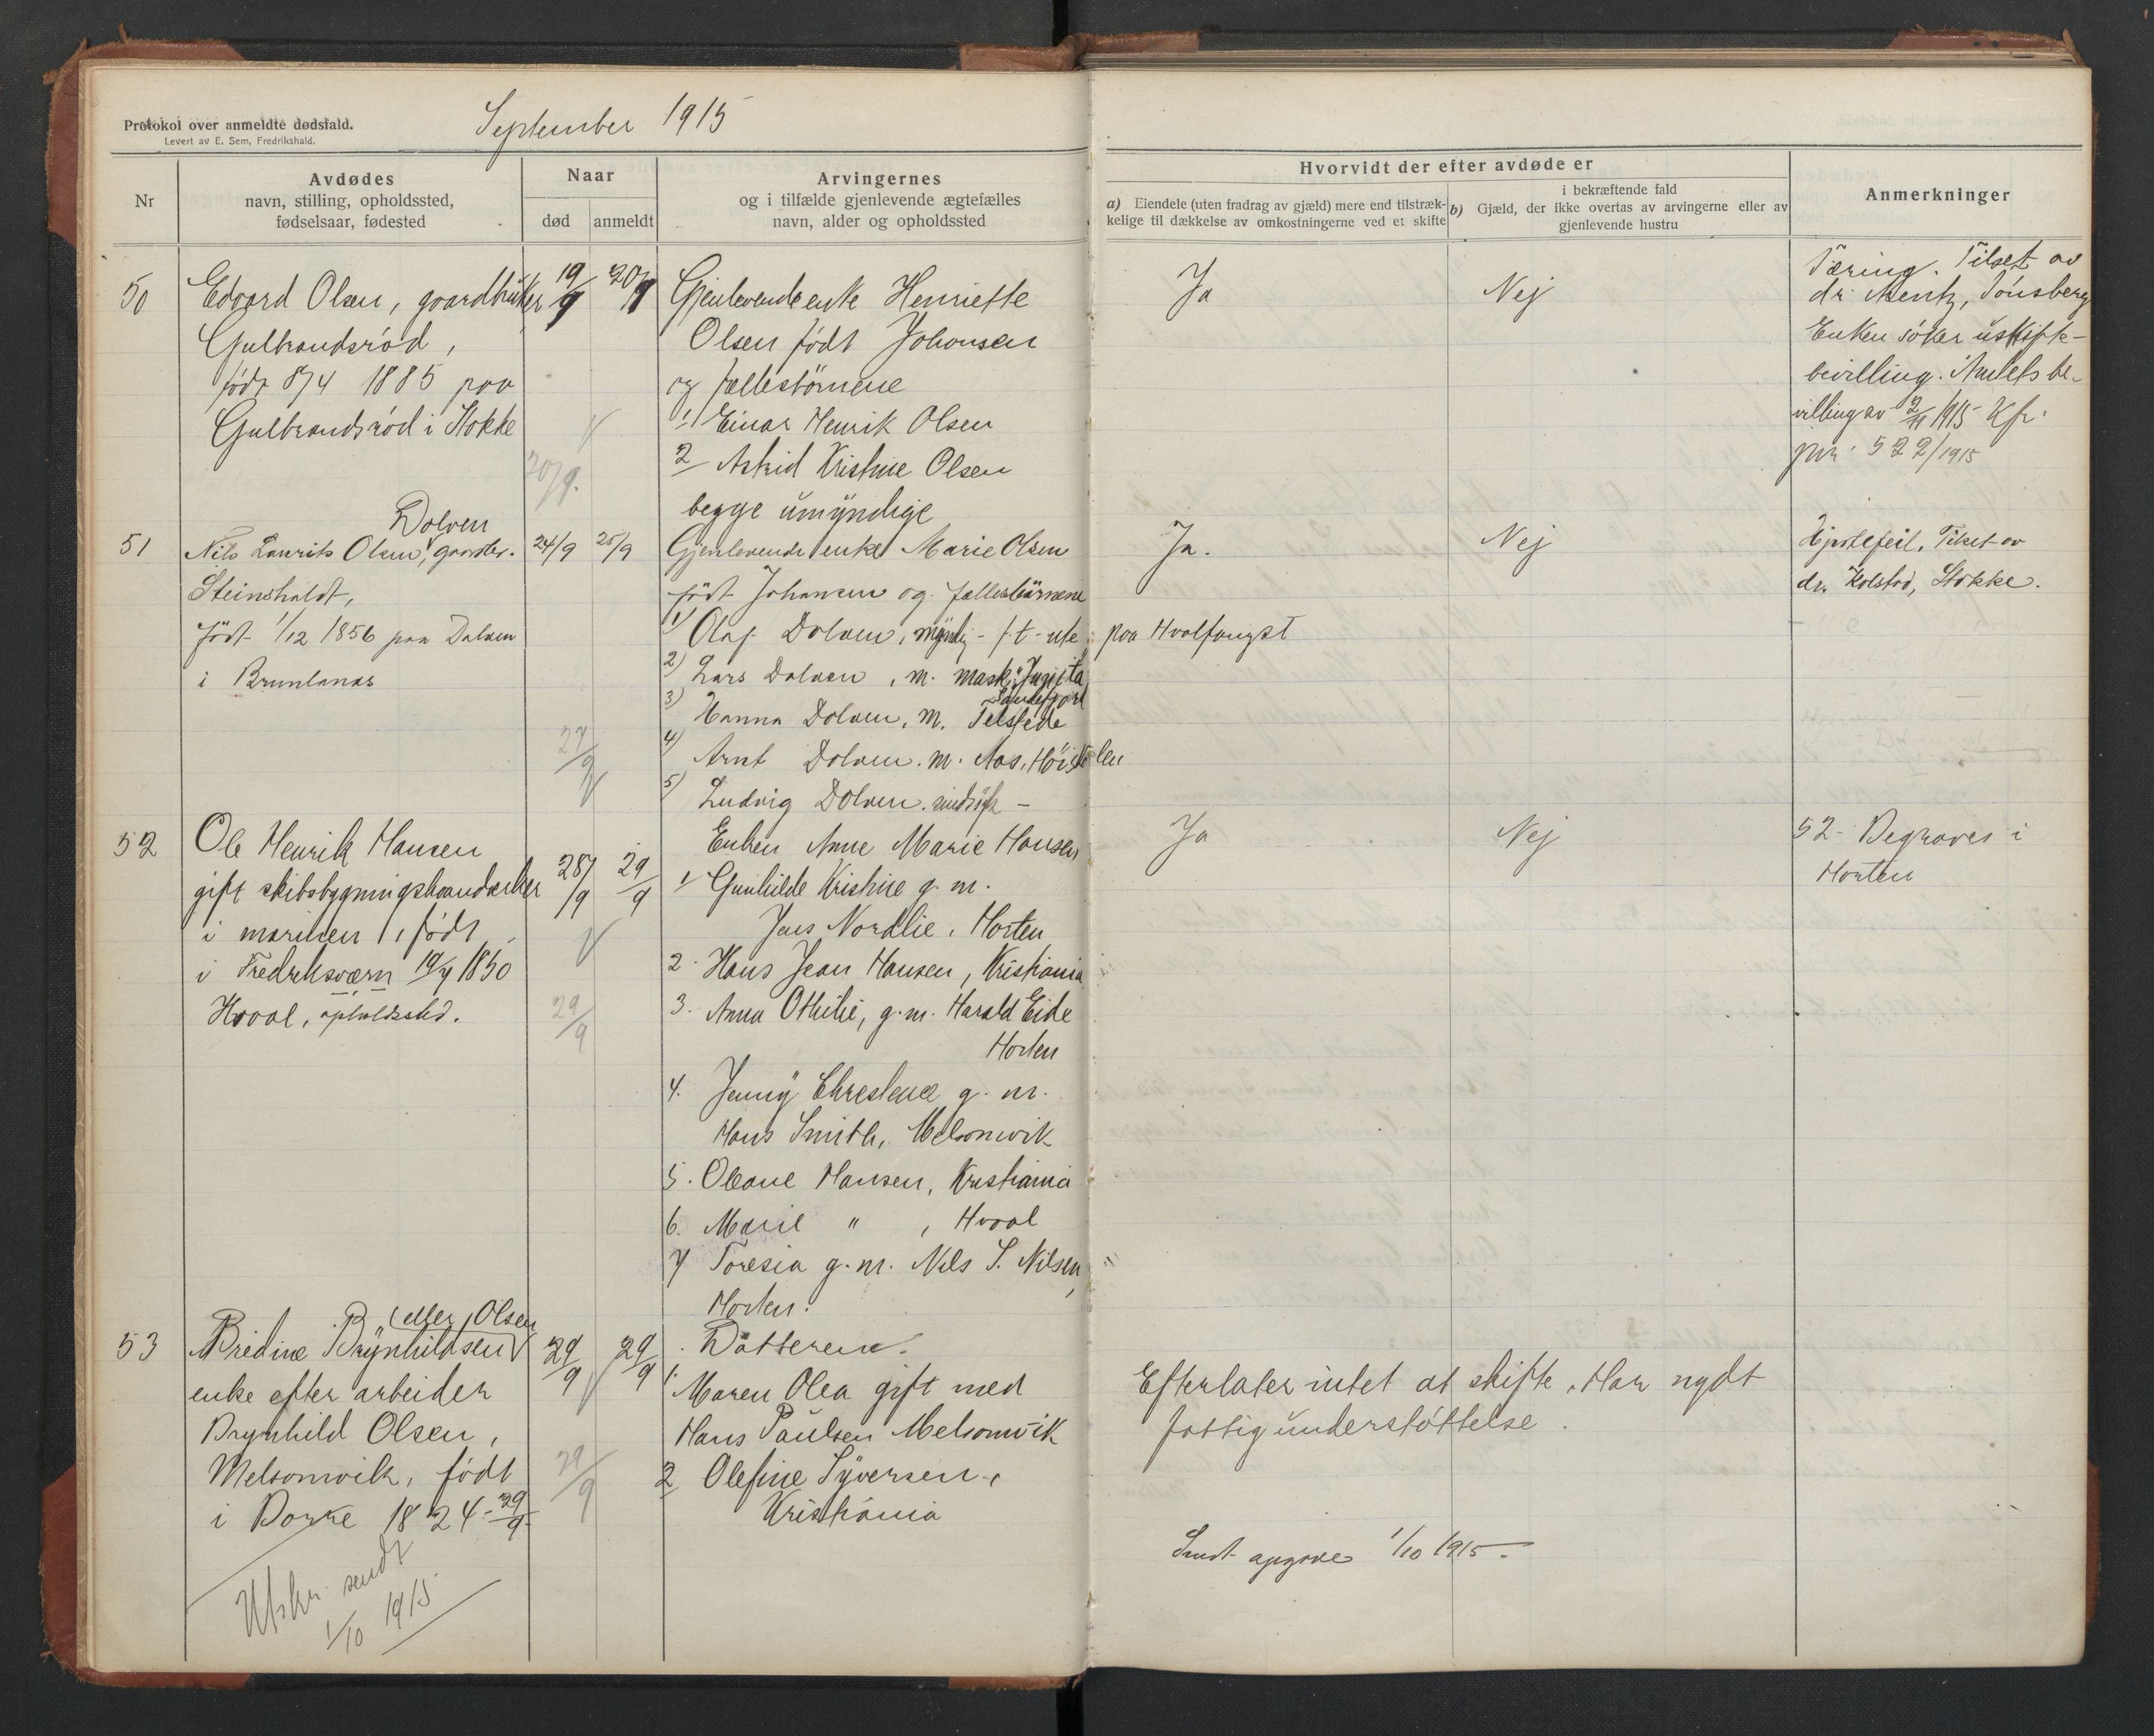 September 1915
Protokol over anmeldte dødsfald.
Levert av E. Sem, Fredrikshald.
Nr
Avdødes
navn, stilling, opholdssted,
fødselsaar, fødested
Naar
død
anmeldt
Arvingernes
og i tilfælde gjenlevende ægtefælles
navn, alder og opholdssted
Hvorvidt der efter avdøde er
a) Eiendele (uten fradrag av gjæld) mere end tilstræk-
kelige til dækkelse av omkostningerne ved et skifte
i bekræftende fald
b) Gjæld, der ikke overtas av arvingerne eller av
gjenlevende hustru
Anmerkninger
50
Edvard Olsen, gaardbruker
Gulbrandsrød,
født 8/4 1885 paa
Gulbrandsrød i Stokke
19/9
20/9
20/9.
Gjenlevende enke Henriette
Olsen født Johansen
og fællesbørnene
1 Einar Henrik Olsen
2 Astrid Kristine Olsen
begge umyndige
Ja
Nej
Tæring. Tilset av
dr. Mentz, Tönsberg
Enken söker uskifte-
bevilling. Amtets be-
villing av 2/11 1915 Kfr.
jnr. 522/1915
51
Dolven
Nils Laurits Olsen, gaardbr.
Steinsholdt,
født 1/12 1856 paa Dolven
i Brunlanas
24/9
25/9
27/9
Gjenlevende enke Marie Olsen
født Johansen og fællesbørnene
1) Olaf Dolven, myndig - f.t. ute paa Hvalfangst
2) Lars Dolven, m. mask.
Sandefjord
3) Hanna Dolven, m. Tilstede
4) Arnt Dolven. m. Aas,
5) Ludvig Dolven. sindssyk -
Ja.
Nej
Hjertefeil. Tilset av
dr. Kolstad, Stokke.
52
Ole Henrik Hansen
gift skibsbygningshaandverker
i marinen, født
i Fredriksværn 19/4 1850
Hvaal, opholdssted.
28/9
29/9
29/9
Enken Anne Marie Hansen
1 Gunhilde Kristine g. m.
Jens Nordlie, Horten
2. Hans Jean Hansen, Kristiania
3. Anna Othilie, g.m. Harald Eide
Horten
4. Jenny Chrestence g. m.
Hans Smith, Melsomvik
5. Oleane Hansen, Kristiania
6. Marie " , Hvaal
7 Toresia g. m. Nils S. Nilsen,
Horten.
Ja
Nej
52 - Begraves i
Horten
53
(eller Olsen
Bredine Brynhildsen
enke efter arbeider
Brynhild Olsen,
Melsomvik, født
i Borre 1824 - 29/9.
29/9
29/9
29/9
Døtterene.
1. Maren Olea gift med
Hans Paulsen Melsomvik
2 Olefine Syversen,
Kristiania
Efterlater intet at skifte. Har nydt
fattigunderstøttelse.
Utskr. sendt
1/10 1915
Sendt opgave 1/10 1915.